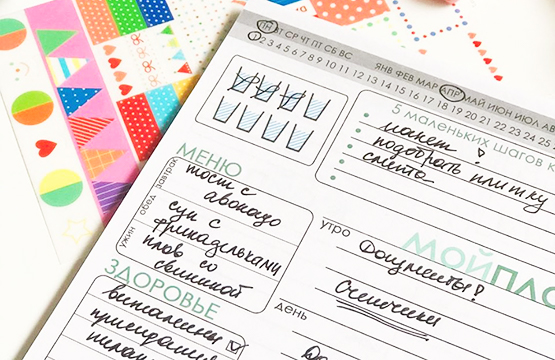 ПН ВТ СР ЧТ ПТ СБ ВС ЯНВ ФЕВ МАР АПР МАЙ ИЮН ИЮЛ АВ
1 2 3 4 5 6 7 8 9 10 11 12 13 14 15 16 17 18 19 20 21 22 23 24 25 26
5 маленьких шагов к
макет!
подобрать плитку
смета
МЕНЮ
завтрак
тост с
авокадо
обед
суп с
фрикадельками
ужин
плов со
свининой
ЗДОРОВЬЕ
витамины
приседания
МОЙПЛА
утро
Документы!
день